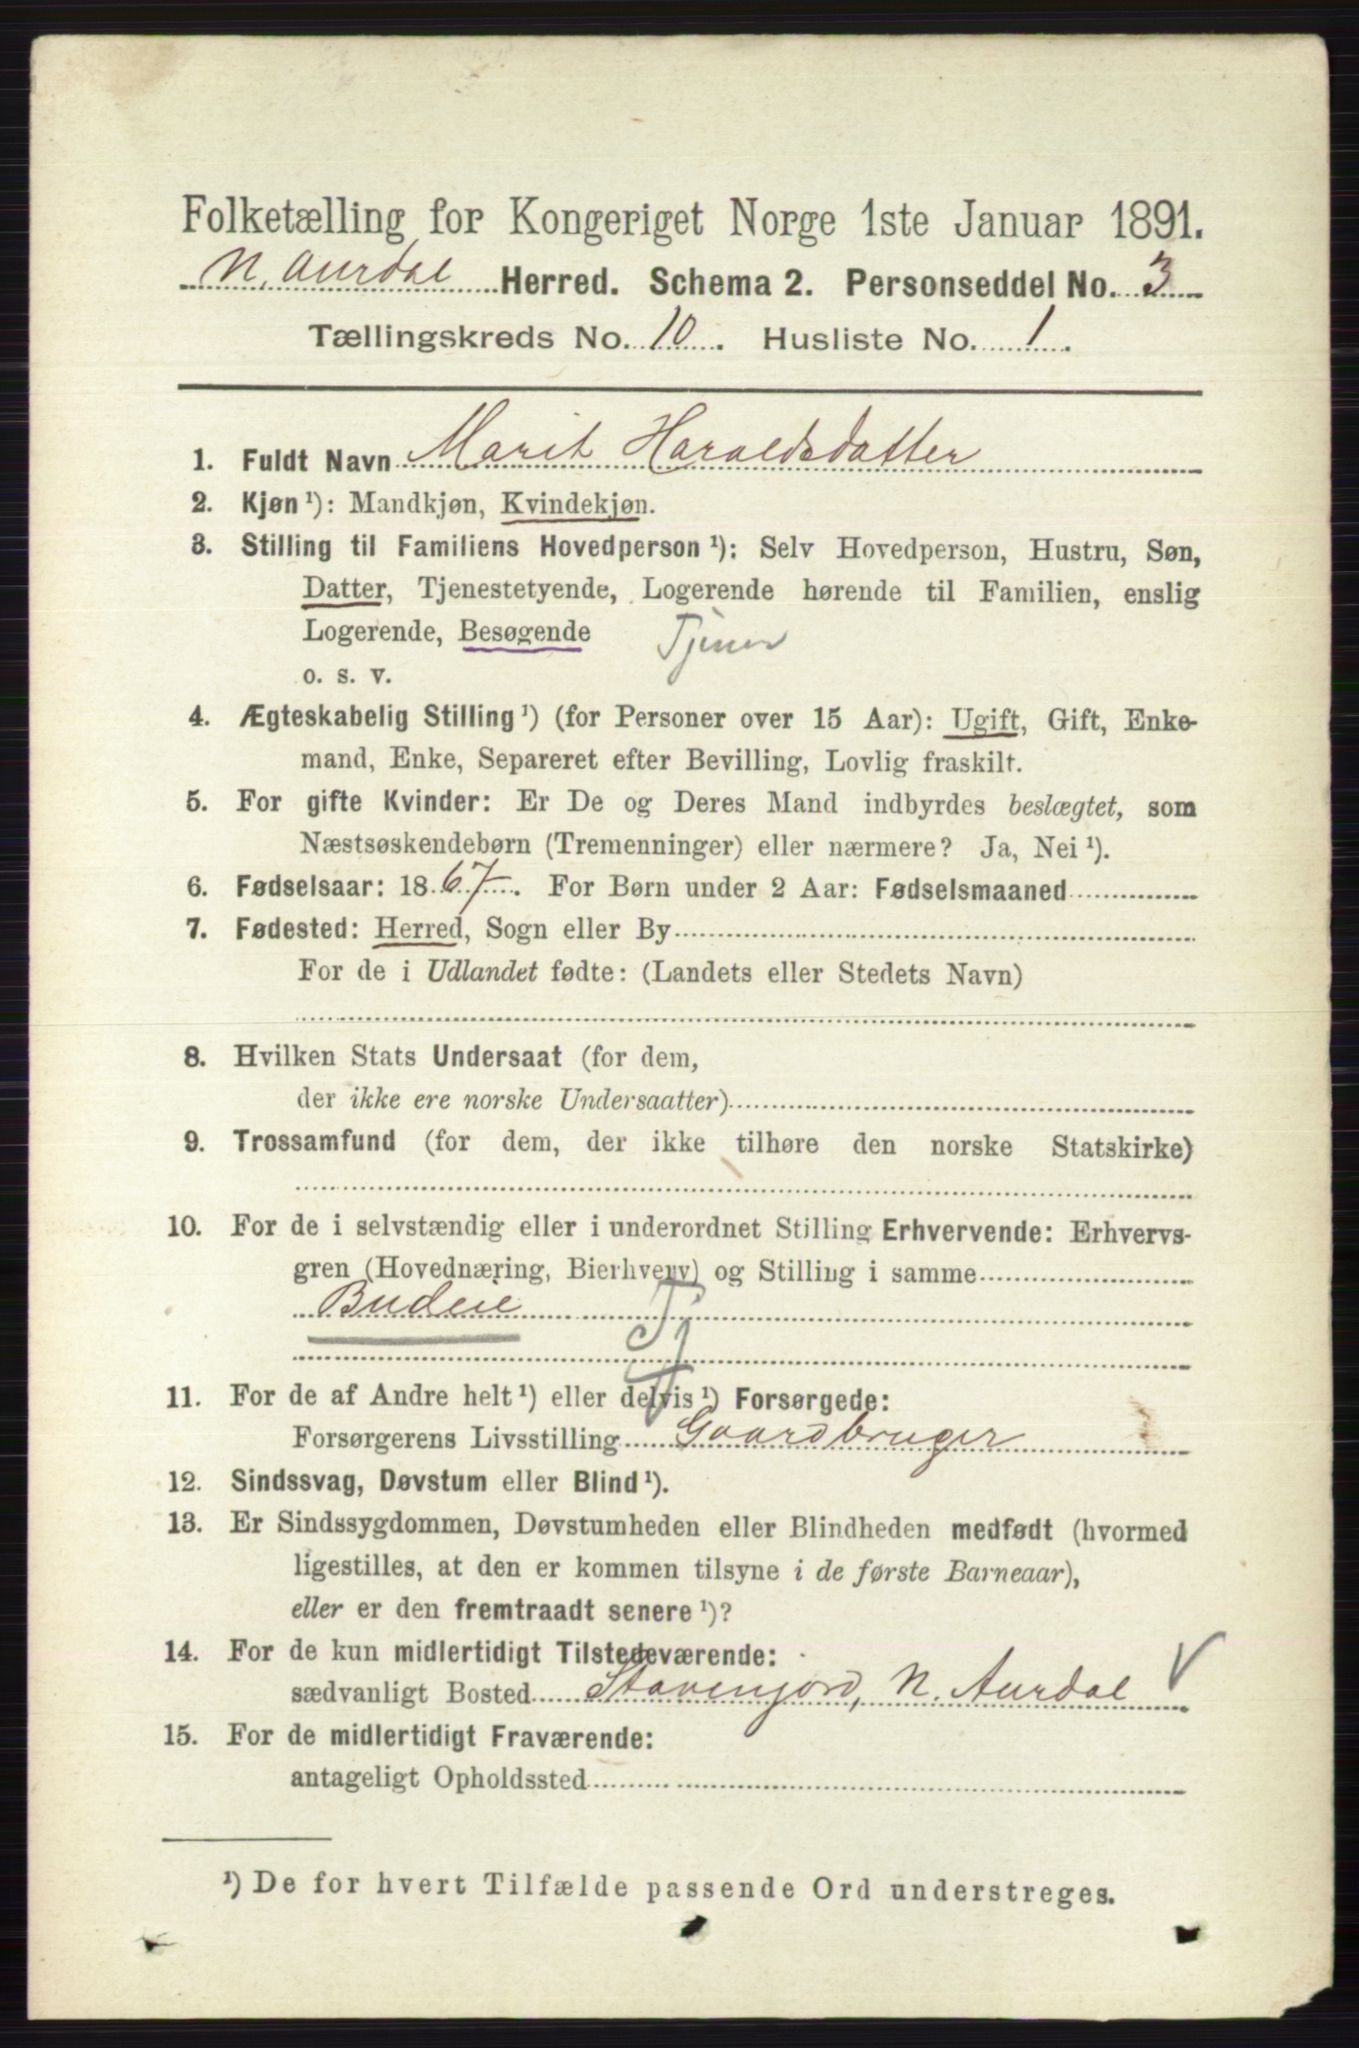 Folketælling for Kongeriget Norge 1ste Januar 1891.
N. Aurdal Herred. Schema 2. Personseddel No. 3
Tællingskreds No. 10. Husliste No. 1.
1. Fuldt Navn Marit Haraldsdatter
2. Kjøn ¹): Mandkjøn, Kvindekjøn.
3. Stilling til Familiens Hovedperson ¹): Selv Hovedperson, Hustru, Søn,
Datter, Tjenestetyende, Logerende hørende til Familien, enslig
Logerende, Besøgende Tjener
o. s. v.
4. Ægteskabelig Stilling ¹) (for Personer over 15 Aar): Ugift, Gift, Enke-
mand, Enke, Separeret efter Bevilling, Lovlig fraskilt.
5. For gifte Kvinder: Er De og Deres Mand indbyrdes beslægtet, som
Næstsøskendebørn (Tremenninger) eller nærmere? Ja, Nei ¹).
6. Fødselsaar: 1867. For Børn under 2 Aar: Fødselsmaaned
7. Fødested: Herred, Sogn eller By
For de i Udlandet fødte: (Landets eller Stedets Navn)
8. Hvilken Stats Undersaat (for dem,
der ikke ere norske Undersaatter)
9. Trossamfund (for dem, der ikke tilhøre den norske Statskirke)
10. For de i selvstændig eller i underordnet Stilling Erhvervende: Erhvervs-
gren (Hovednæring, Bierhverv) og Stilling i samme
Budeie Tj
11. For de af Andre helt ¹) eller delvis ¹) Forsørgede:
Forsørgerens Livsstilling Gaardbruger
12. Sindssvag, Døvstum eller Blind ¹).
13. Er Sindssygdommen, Døvstumheden eller Blindheden medfødt (hvormed
ligestilles, at den er kommen tilsyne i de første Barneaar),
eller er den fremtraadt senere ¹)?
14. For de kun midlertidigt Tilstedeværende:
sædvanligt Bosted Stavenjord, N. Aurdal V
15. For de midlertidigt Fraværende:
antageligt Opholdssted
¹) De for hvert Tilfælde passende Ord understreges.